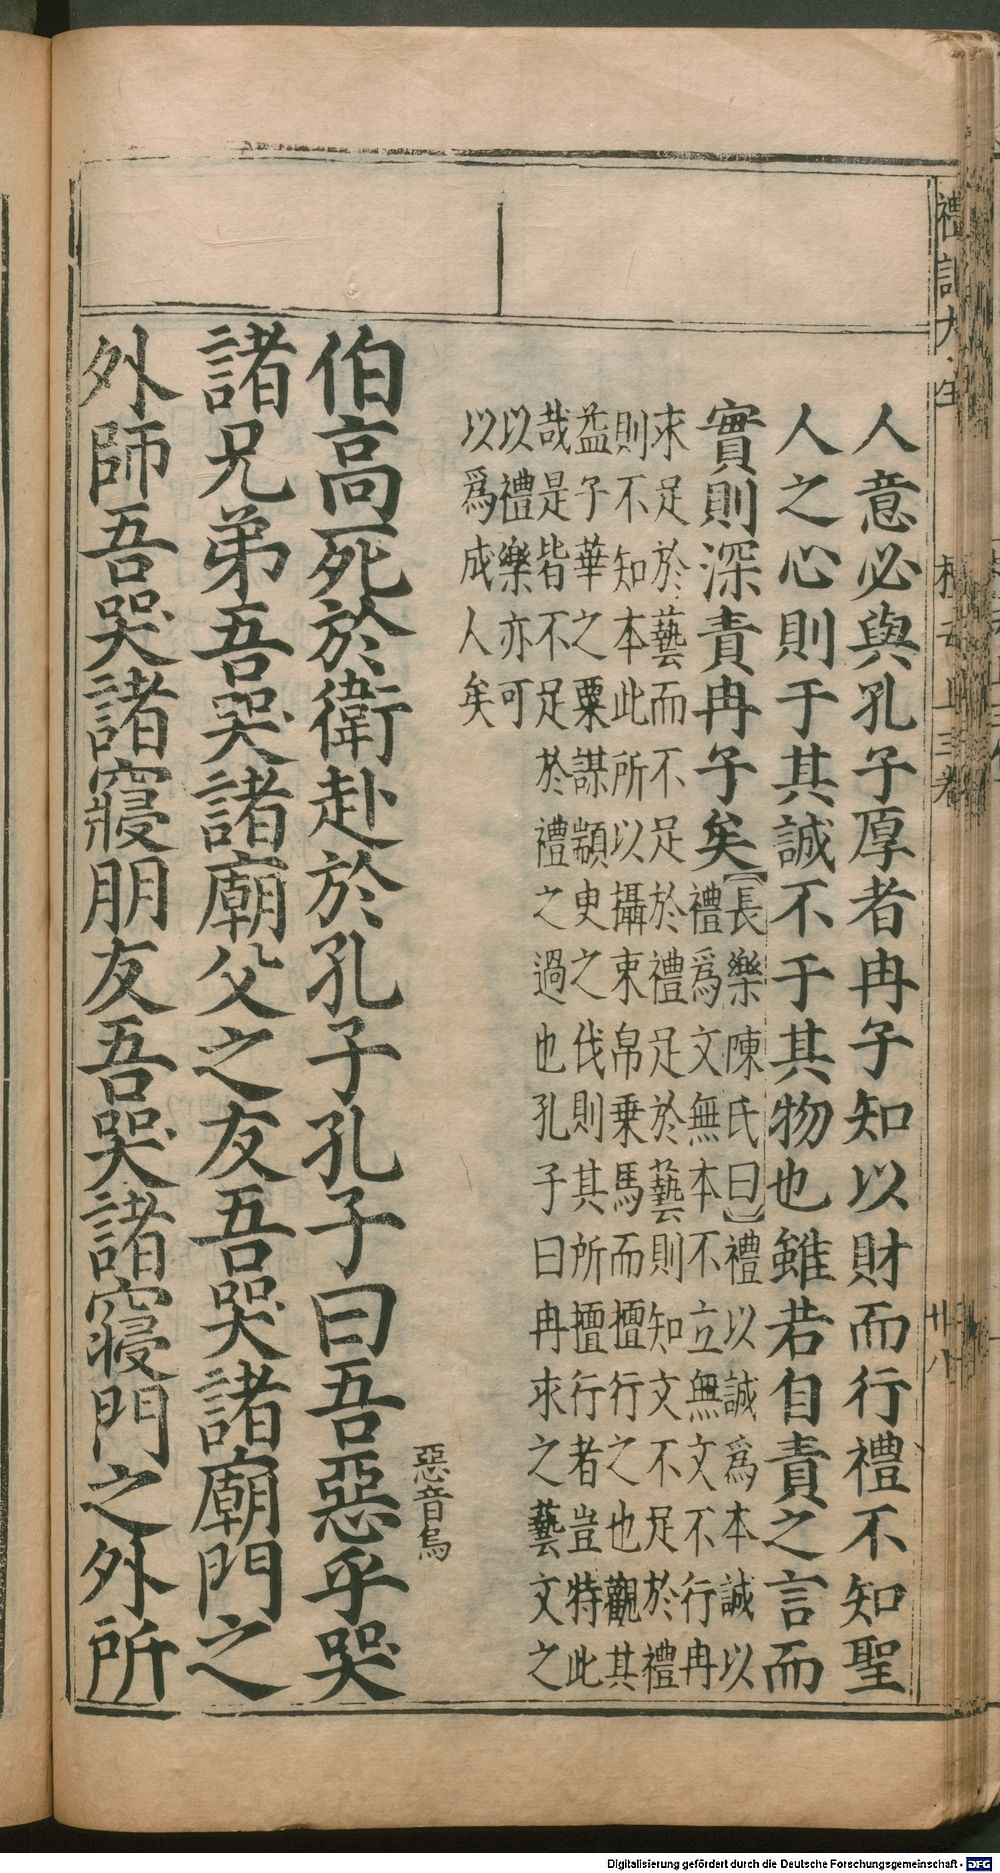 人意必與孔子厚者冉子知以財而行禮不知聖
人之心則于其誠不于其物也雖若自責之言而
實則深責冉子矣
【長樂陳氏曰】禮以誠爲本誠以
禮爲文無本不立無文不行冉
求足於藝而不足於禮足於藝則知文不足於禮
則不知本此所以攝束帛乗馬而擅行之也觀其
益子華之粟謀顓臾之伐則其所擅行者豈特此
哉是皆不足於禮之過也孔子曰冉求之藝文之
以禮樂亦可
以爲成人矣
惡音烏
伯高死於衛赴於孔子孔子曰吾惡乎哭
諸兄弟吾哭諸廟父之友吾哭諸廟門之
外師吾哭諸寢朋友吾哭諸寢門之外所
Digitalisierung gefördert durch die Deutsche Forschungsgemeinschaft - DFG